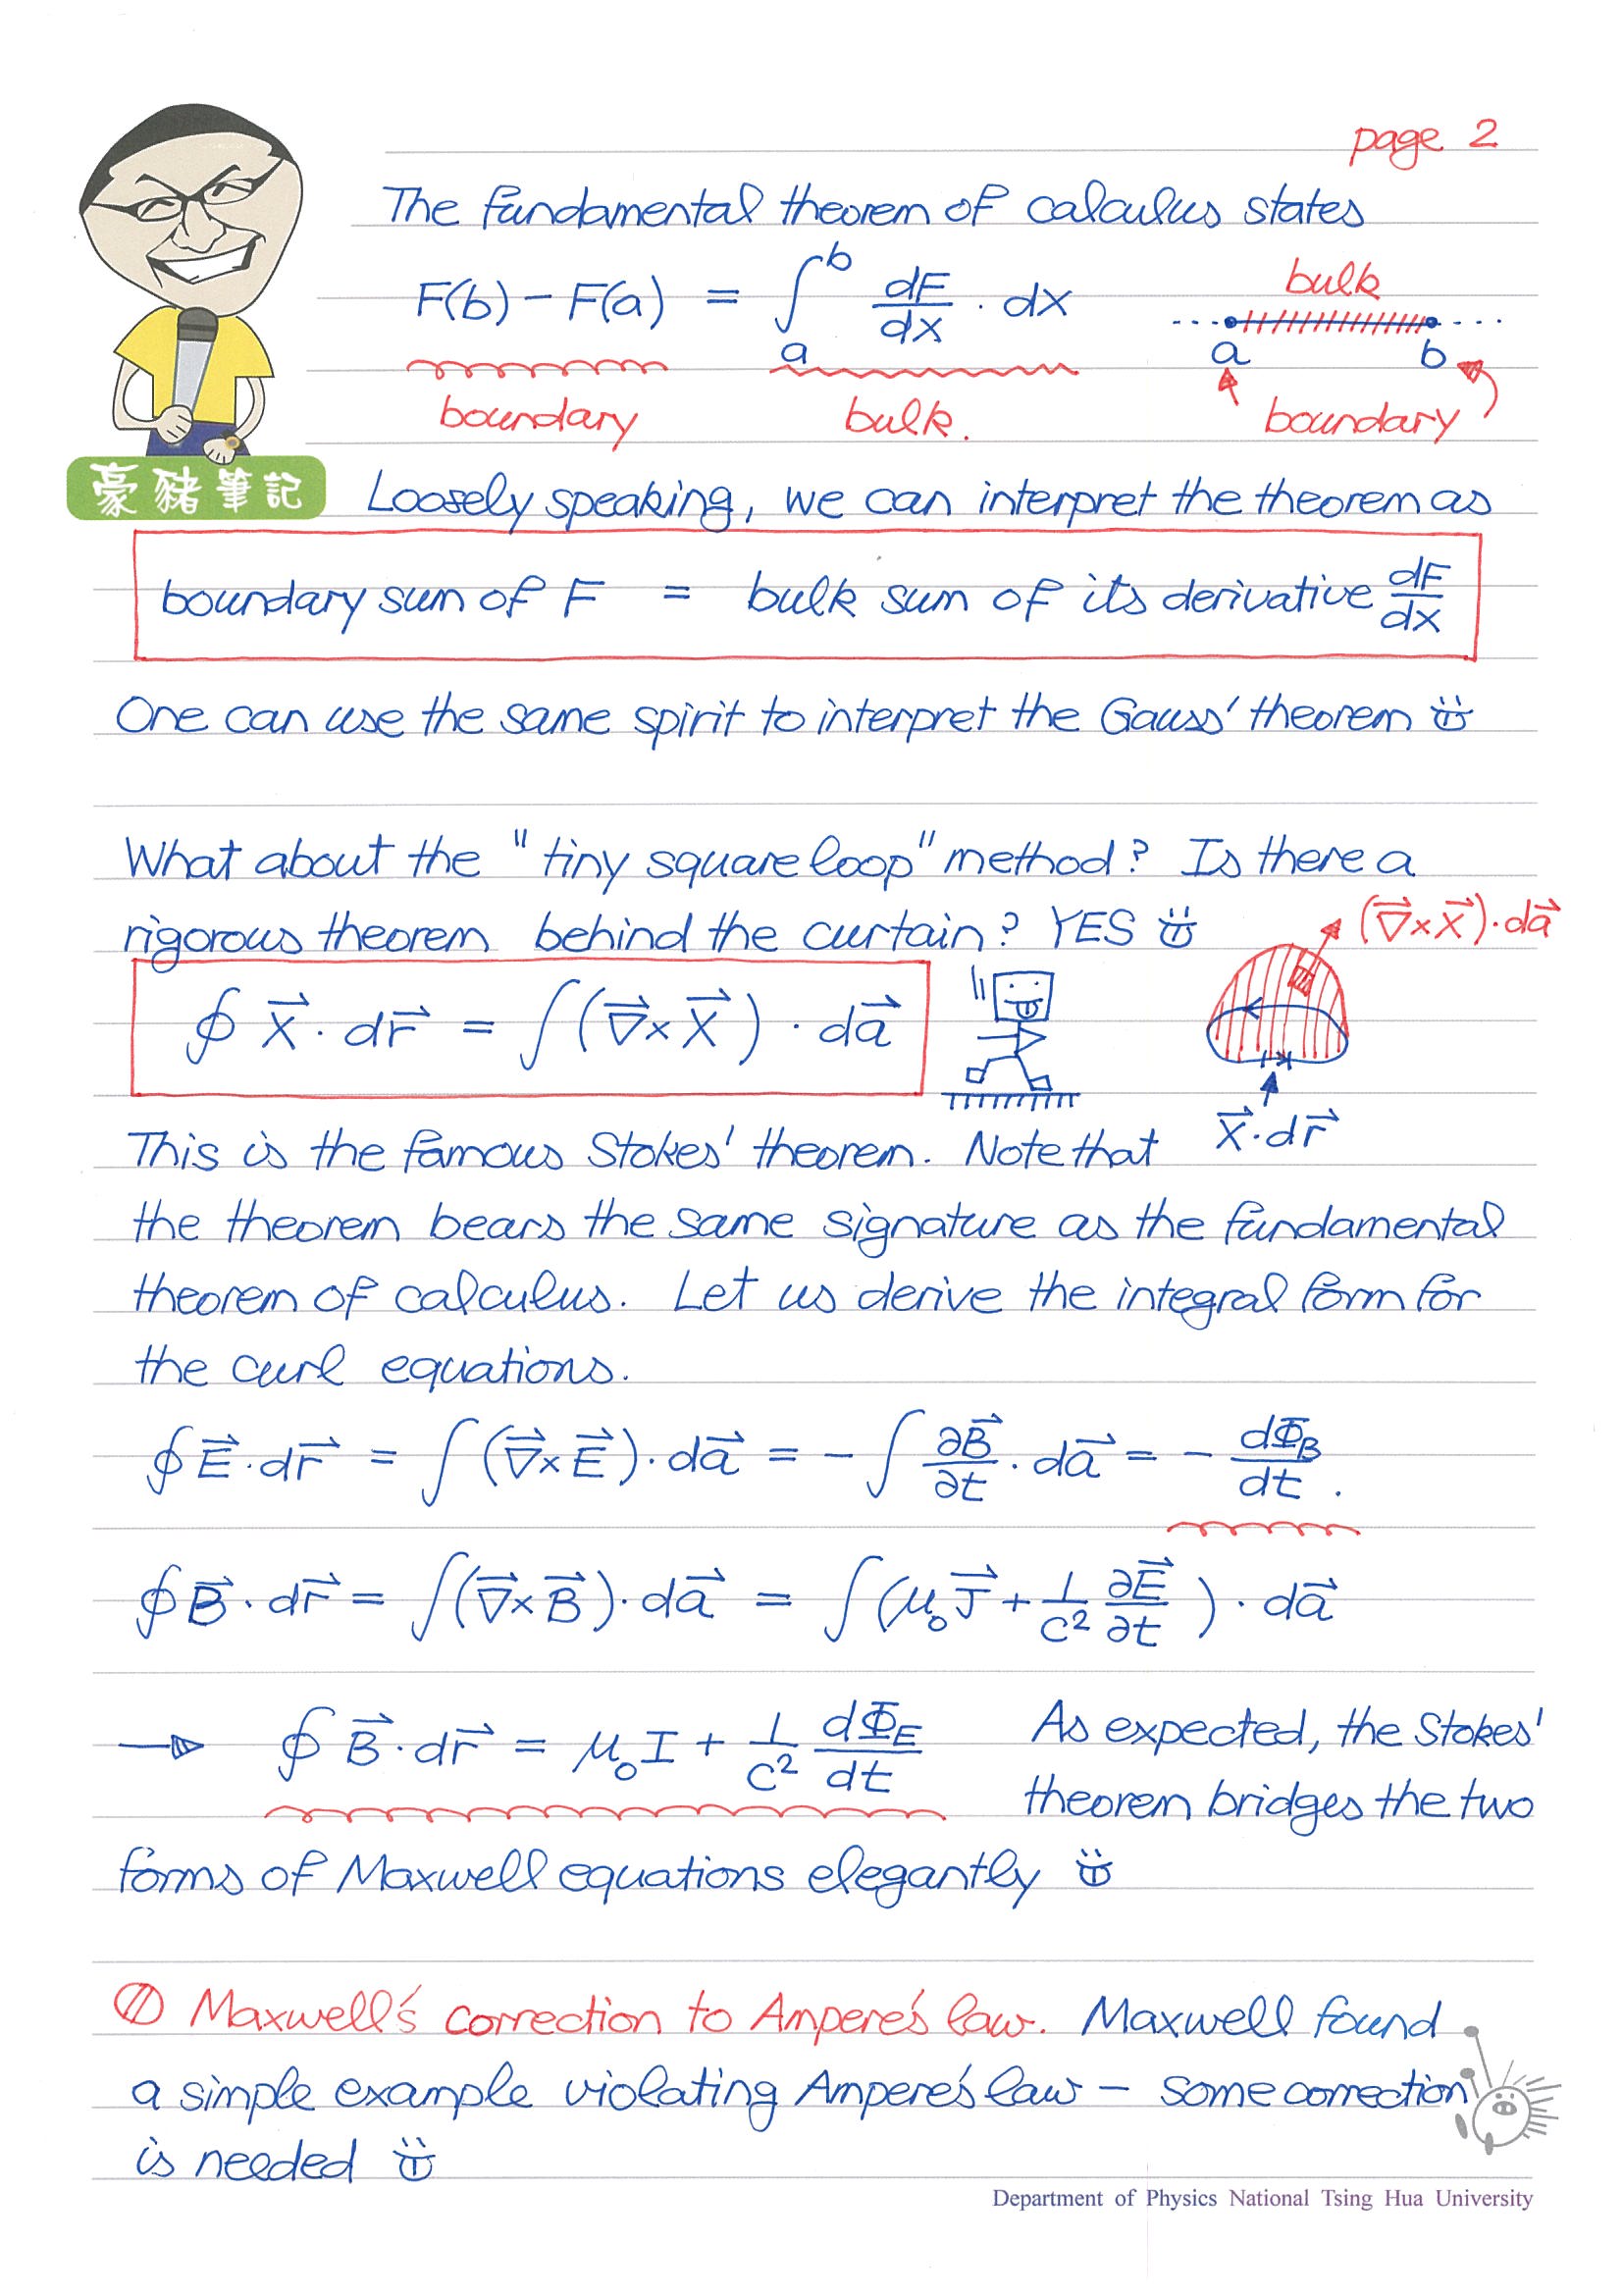 page 2
The fundamental theorem of calculus states
F(b) − F(a) = ∫_a^b dF/dx · dx
bulk
a b
boundary bulk. boundary
豪豬筆記
Loosely speaking, we can interpret the theorem as
boundary sum of F = bulk sum of its derivative dF/dx
One can use the same spirit to interpret the Gauss' theorem
What about the "tiny square loop" method? Is there a
rigorous theorem behind the curtain? YES
(∇⃗×X⃗)·da⃗
∮ X⃗ · dr⃗ = ∫(∇⃗×X⃗) · da⃗
X⃗·dr⃗
This is the famous Stokes' theorem. Note that
the theorem bears the same signature as the fundamental
theorem of calculus. Let us derive the integral form for
the curl equations.
∮ E⃗·dr⃗ = ∫(∇⃗×E⃗)·da⃗ = −∫ ∂B⃗/∂t · da⃗ = − dΦ_B/dt .
∮ B⃗·dr⃗ = ∫(∇⃗×B⃗)·da⃗ = ∫(μ₀J⃗ + 1/c² ∂E⃗/∂t) · da⃗
→ ∮ B⃗·dr⃗ = μ₀I + 1/c² dΦ_E/dt As expected, the Stokes'
theorem bridges the two
forms of Maxwell equations elegantly
Maxwell's correction to Ampere's law. Maxwell found
a simple example violating Ampere's law – some correction
is needed
Department of Physics National Tsing Hua University